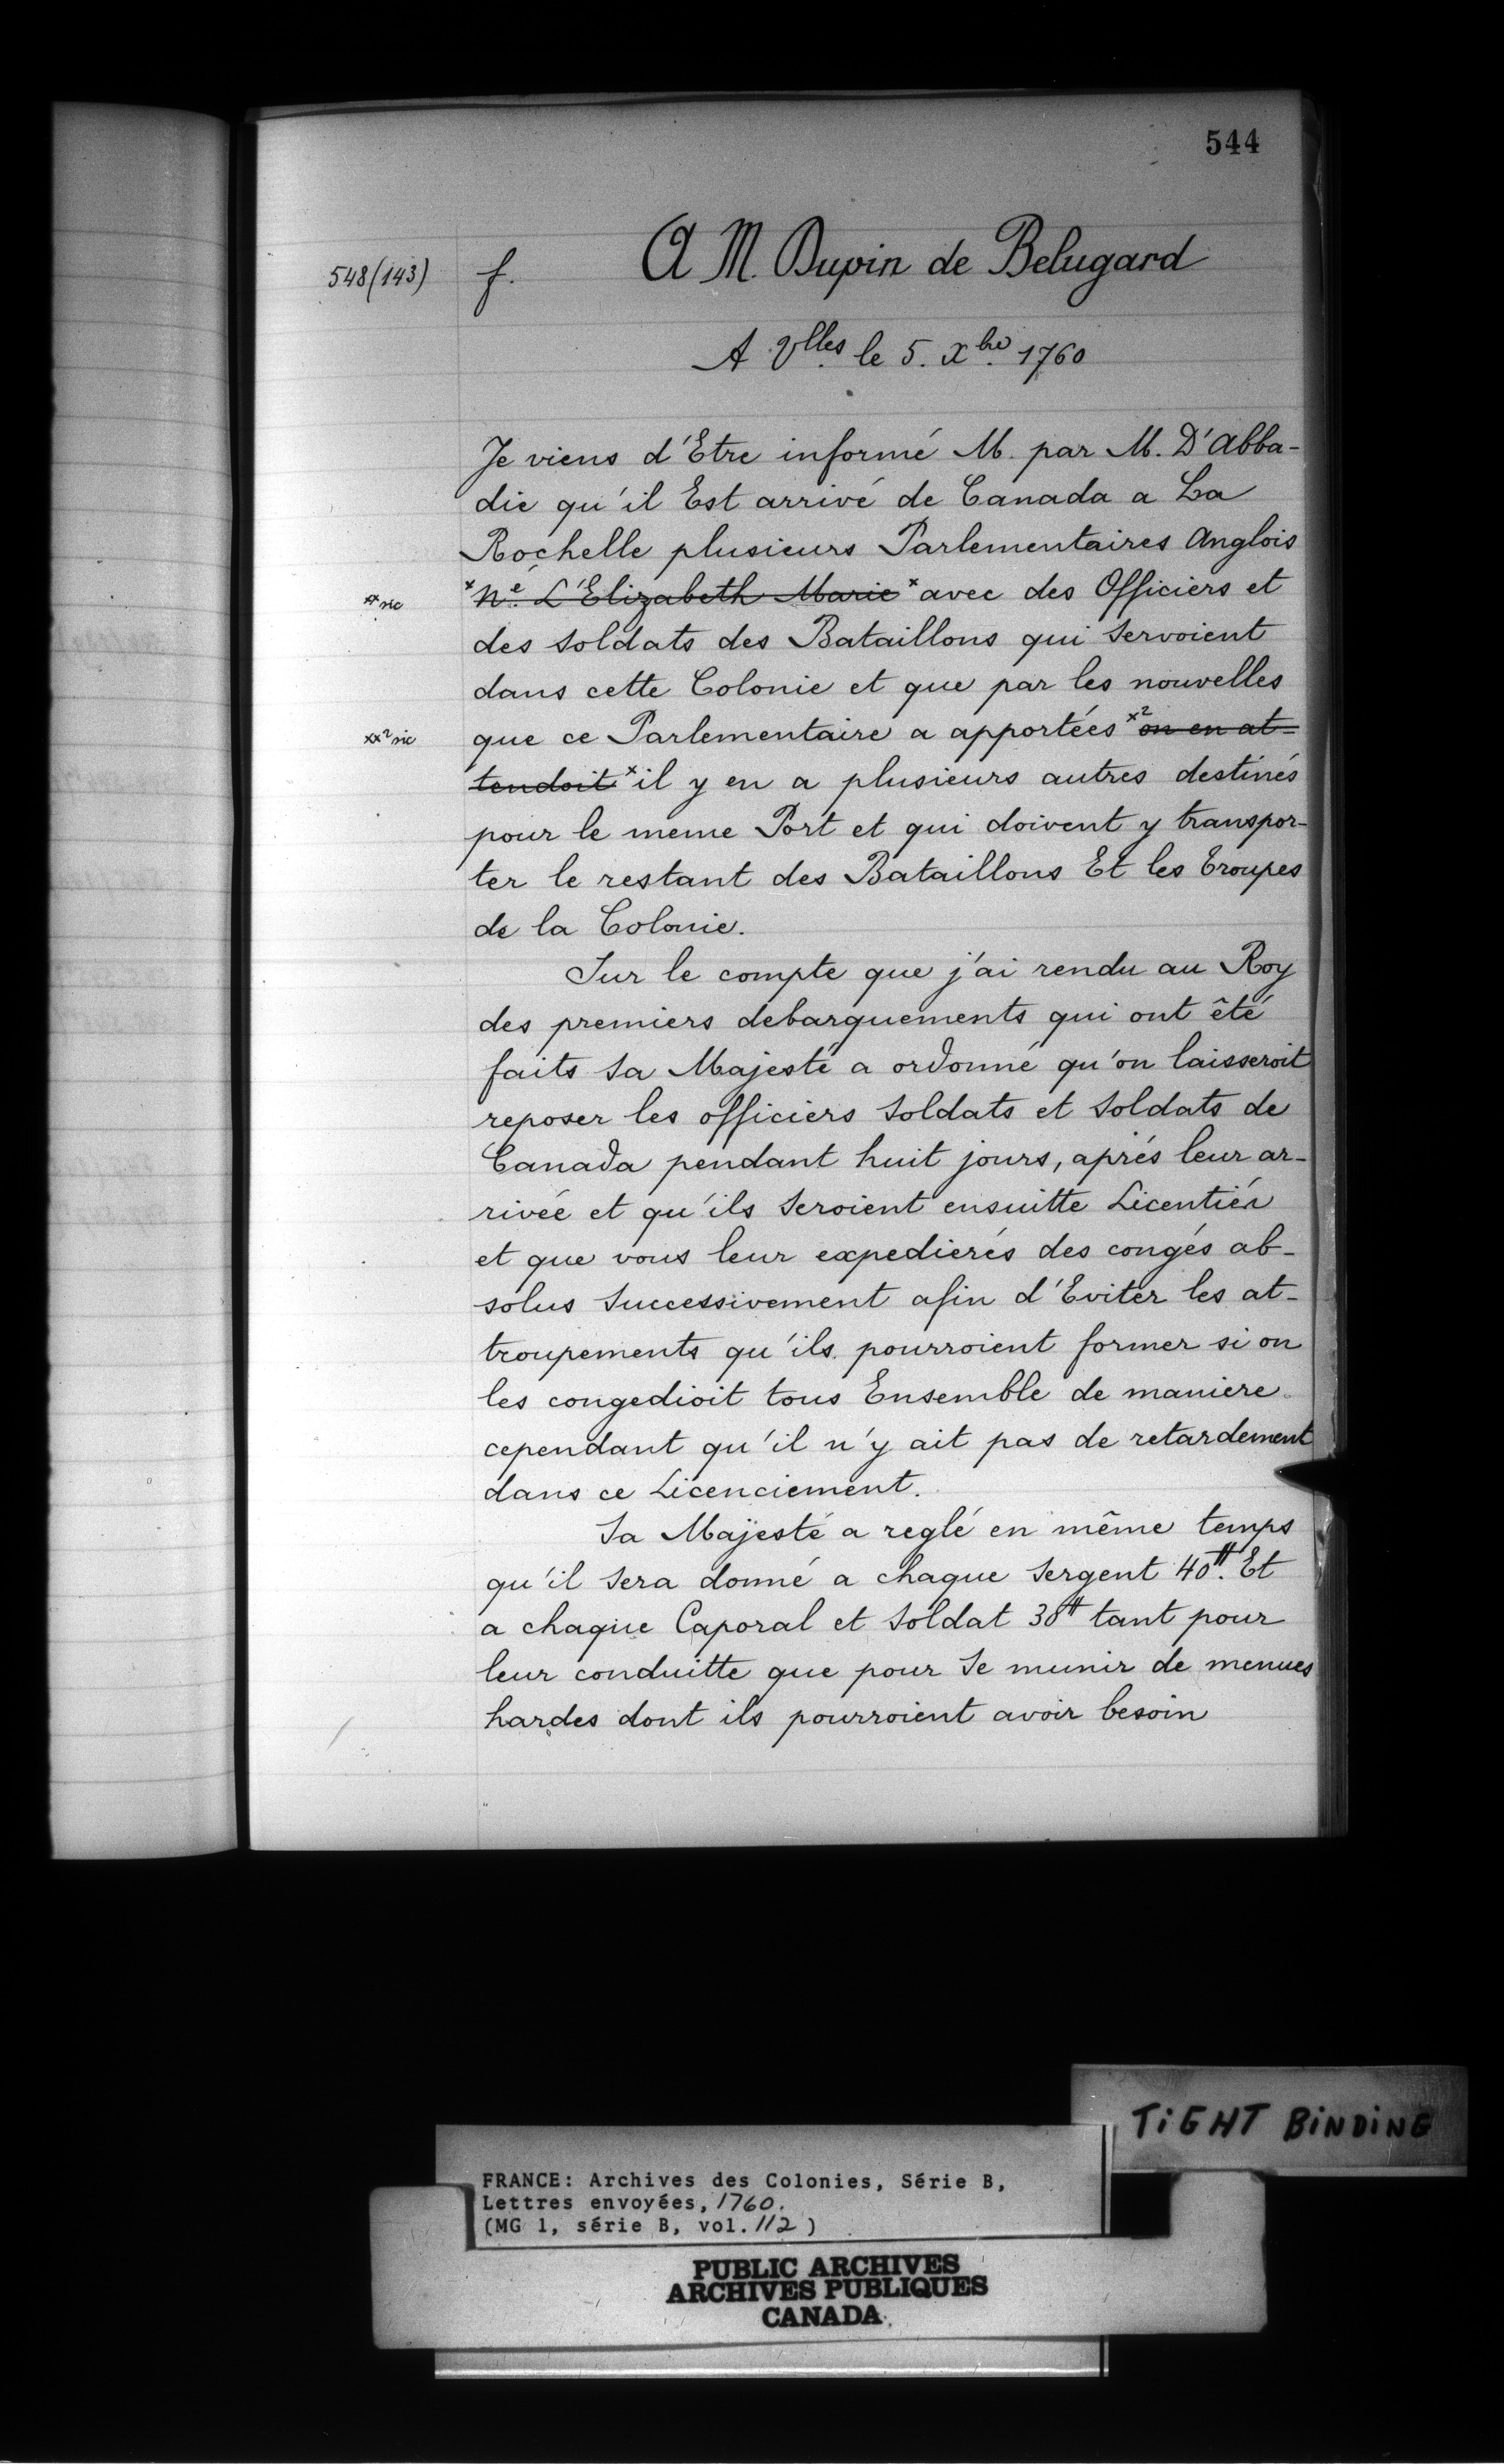 544
548(143) f. A M. Dupin de Belugard
A Vlles. le 5. Xbre. 1760
Je viens d'Etre informé M. par M. D'Abba-
die qu'il Est arrivé de Canada a La
Rochelle plusieurs Parlementaires Anglois
xx sic x Né. L'Elizabeth Marie x avec des Officiers et
des soldats des Bataillons qui servoient
dans cette Colonie et que par les nouvelles
xx2 sic que ce Parlementaire a apportées x2 on en at=
tendoit x il y en a plusieurs autres destinés
pour le meme Port et qui doivent y transpor-
ter le restant des Bataillons Et les troupes
de la Colonie.
Sur le compte que j'ai rendu au Roy
des premiers debarquements qui ont êté
faits sa Majesté a ordonné qu'on laisseroit
reposer les officiers soldats et soldats de
Canada pendant huit jours, aprés leur ar-
rivée et qu'ils seroient ensuitte Licentiés
et que vous leur expedierés des congés ab-
solus successivement afin d'Eviter les at-
troupements qu'ils pourroient former si on
les congedioit tous Ensemble de maniere
cependant qu'il n'y ait pas de retardement
dans ce Licenciement.
Sa Majesté a reglé en même temps
qu'il sera donné a chaque sergent 40tt. Et
a chaque Caporal et soldat 30tt tant pour
leur conduitte que pour se munir de menues
hardes dont ils pourroient avoir besoin
TiGHT BiNDiNG
FRANCE: Archives des Colonies, Série B,
Lettres envoyées, 1760.
(MG 1, série B, vol. 112)
PUBLIC ARCHIVES
ARCHIVES PUBLIQUES
CANADA